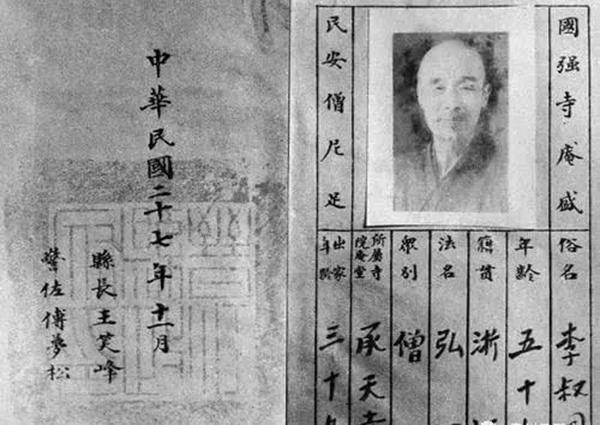 國强寺庵盛
民安僧尼足
俗名 李叔
年齡 五十
籍貫 浙
法名 弘
衆别 僧
所屬寺院庵堂 承天寺
出家年齡 三十
中華民國二十七年十一月
縣長王笑峰
警佐傅夢松